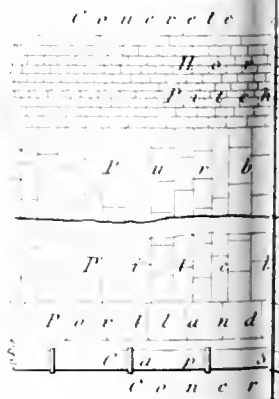 Concrete
Hor
Pitch
Purb
Pitch
Portland
Cap S
Concr